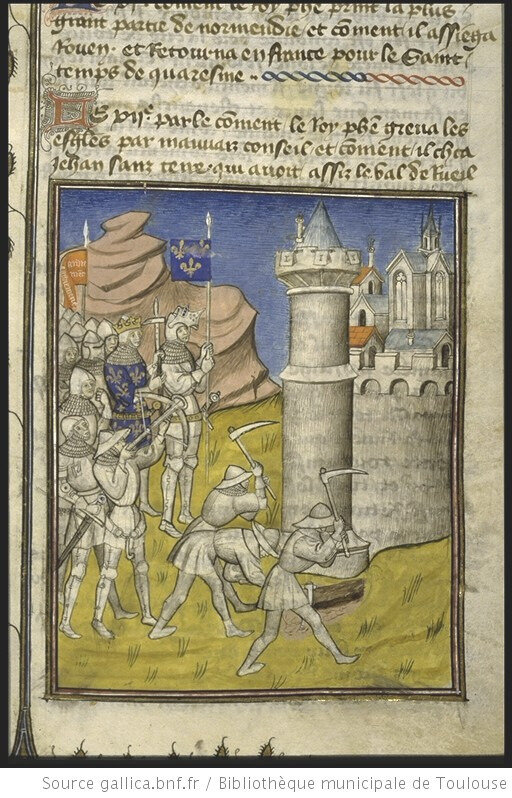 coment le roy phe print la plus
grant partie de normendie et coment il assiega
Rouen et Retourna en france pour le Saint
temps de quaresme
parle coment le Roy phe greva les
esgles par mauvaiz conseil et coment il chca
Jehan sanz terre qui avoit assiz le val de Rueil
Source gallica.bnf.fr / Bibliothèque municipale de Toulouse